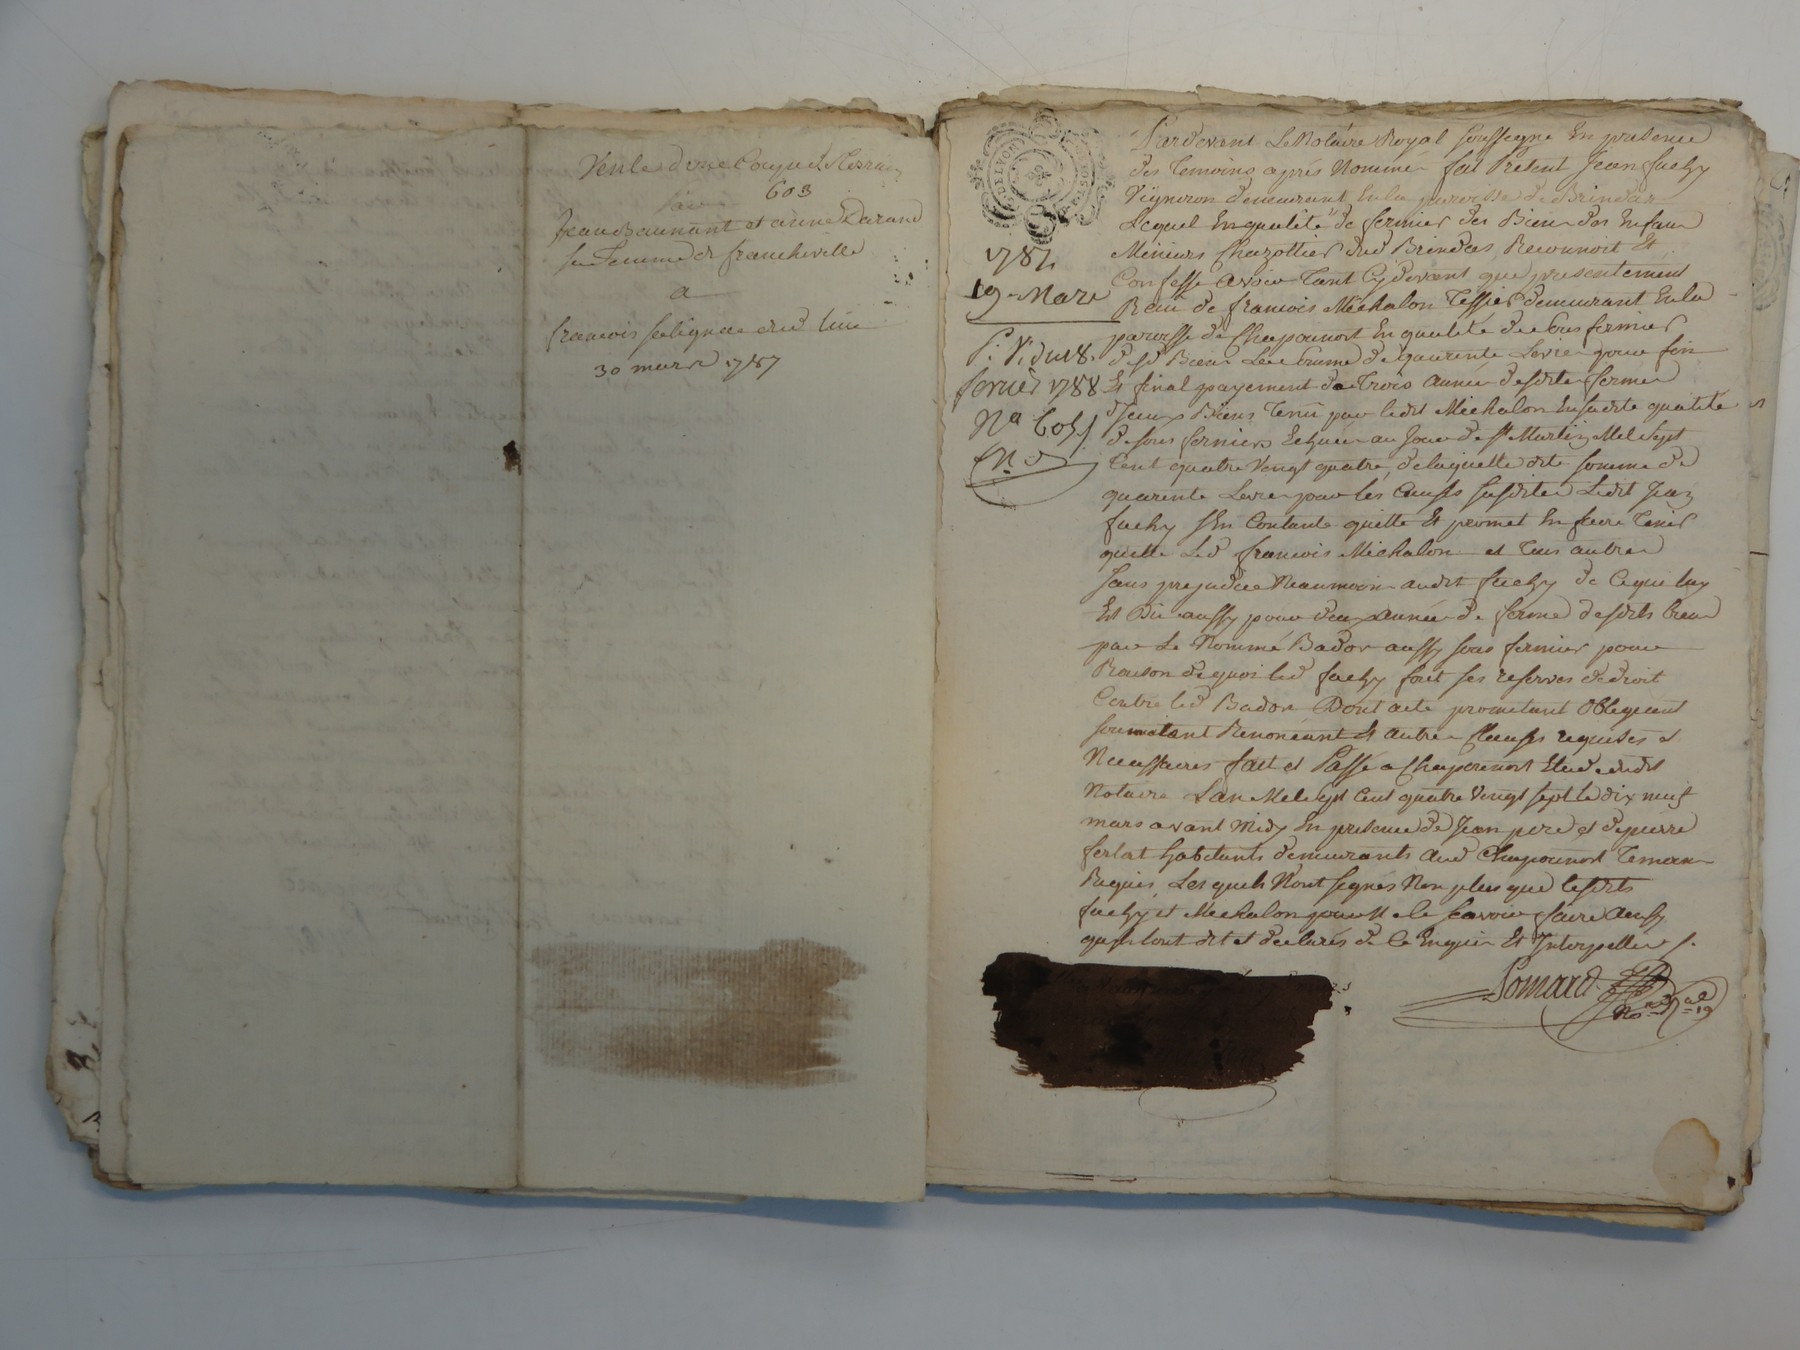 Vente d'une Coupe de Terrain
603
Jean Baunant et anne Durand
sa femme de francheville
a
francois Salignac dud lieu
30 mars 1787
DE LYON
1787
19 Mars
Pr V. du 18
fevrier 1788
Na 605
Pardevant Le Notaire Royal soussigné En presence
des Temoins après Nommé fut Present Jean fuchy
Vigneron demeurant En la paroisse de Brindas
Lequel En qualité de fermier des Biens des Enfans
Mineurs Chazottier dud Brindas, Reconnoit Et
Confesse avoir Tant Cy devant que presentement
Recu de francois Michalon Tessier demeurant En la
paroisse de Chaponost En qualité de sous fermier
desd Biens La somme de quarente Livres pour fin
Et final payement de Trois année desdite ferme
d'Iceux Biens Tenû par ledit Michalon En sadite qualité
de sous fermiers Echuée au Jour de St Martin Mil Sept
Cent quatre Vengt quatre, de laquelle dite somme de
quarente Livre pour les Causes susdites Ledit Jean
fuchy s'En Contente quitte Et promet En faire Tenir
quitte Led francois Michalon et Tous autres
sans prejudice Neanmoin audit fuchy de Ce qui luy
Est Dû aussy pour deux année de ferme desdits biens
par Le Nommé Bador aussy sous fermier pour
Raison de quoi led fuchy fait ses reserves de droit
Contre led Bador Dont acte promettant Obligeant
soumetant Renonceant Et autres Clauses requises et
Necessaires fait et Passé a Chaponost Etude dudit
Notaire L'an Mil Sept Cent quatre Vengt sept Le dix neuf
mars avant midy En presence de Jean pere et de pierre
ferlat habitants demeurants aud Chaponost Temoins
Requis, Lesquels N'ont signés Non plus que lesdits
fuchy et Michalon pour Ne le savoir faire Ainsy
qu'ils l'ont dit et declarés de Ce Enquis Et Interpellés /.